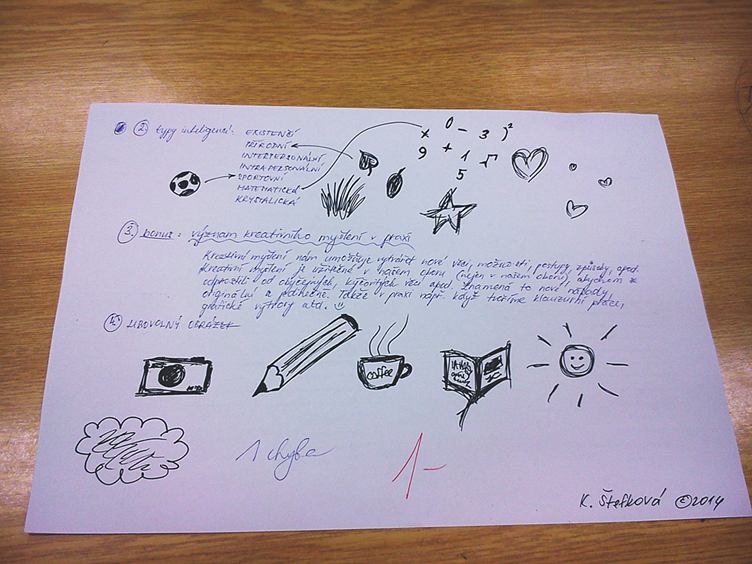 2. typy inteligencí: EXISTENČÍ
PŘÍRODNÍ
INTERPERSONÁLNÍ
INTRAPERSONÁLNÍ
SPORTOVNÍ
MATEMATICKÁ
KRYSTALICKÁ
x 0 - 3 )²
9 + √
5
3. bonus: význam kreativního myšlení v praxi
Kreativní myšlení nám umožňuje vytvářet nové věci, možnosti, postupy, způsoby, apod.
Kreativní myšlení je užitečné v našem oboru (nejen v našem oboru), abychom se
odprostili od obyčejných, kýčovitých věcí apod. Znamená to nové nápady,
originální a jedinečné. Takže v praxi např. když tvoříme klauzurní práce,
grafické výtvory atd. ☺
4. LIBOVOLNÝ OBRÁZEK
coffee
1 chyba
1-
K. Štefková ©2014